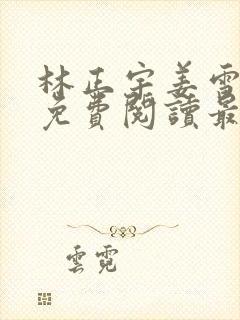 林正宇姜雪
免費閱讀最
雲霓